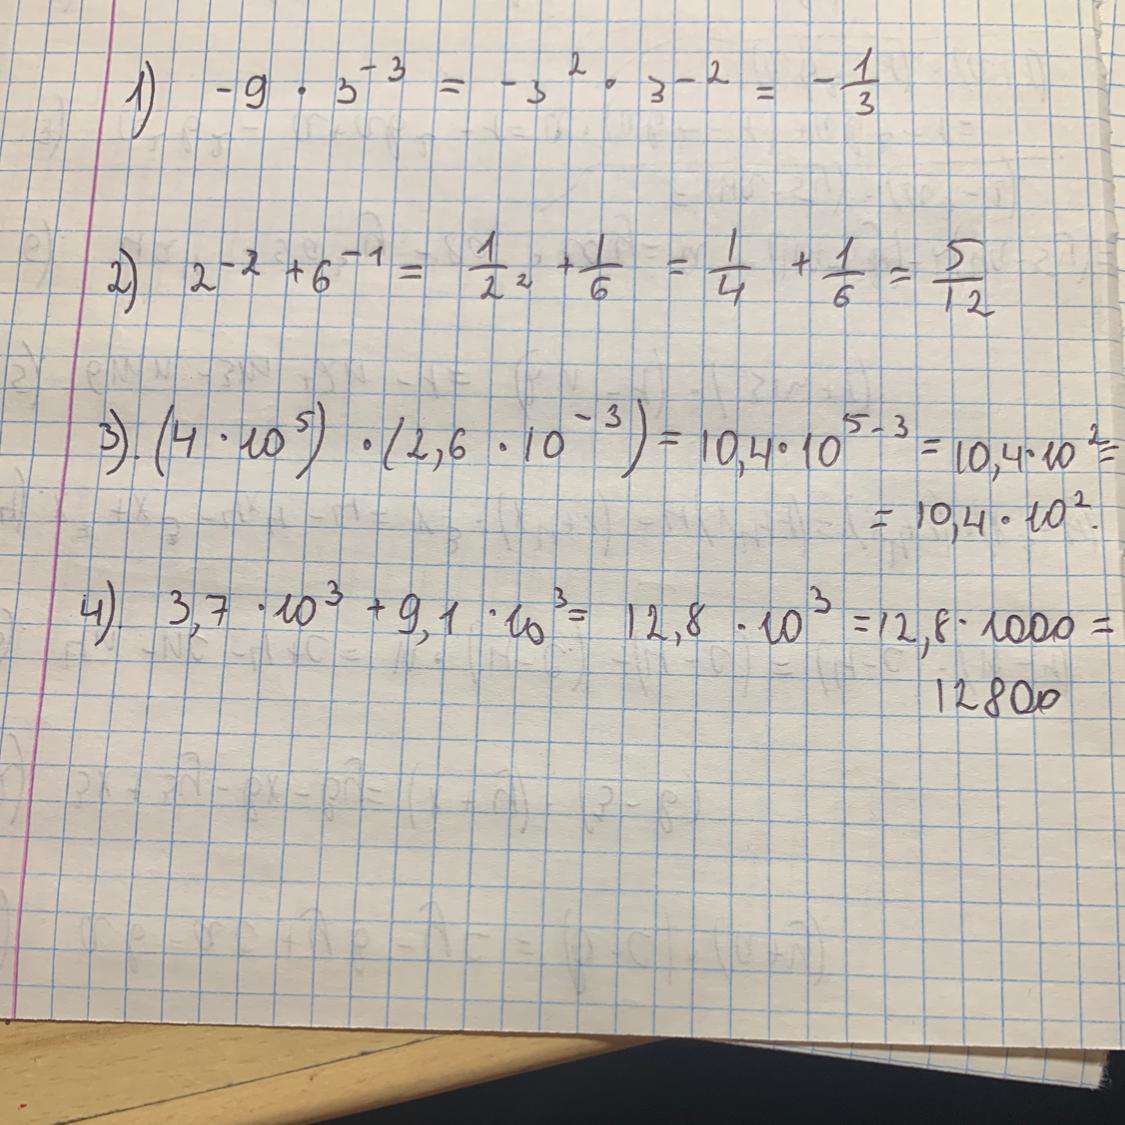 1) -9 · 3⁻³ = -3² · 3⁻² = -1/3
2) 2⁻² + 6⁻¹ = 1/2² + 1/6 = 1/4 + 1/6 = 5/12
3). (4 · 10⁵) · (2,6 · 10⁻³) = 10,4 · 10⁵⁻³ = 10,4 · 10² =
= 10,4 · 10².
4) 3,7 · 10³ + 9,1 · 10³ = 12,8 · 10³ = 12,8 · 1000 =
12800